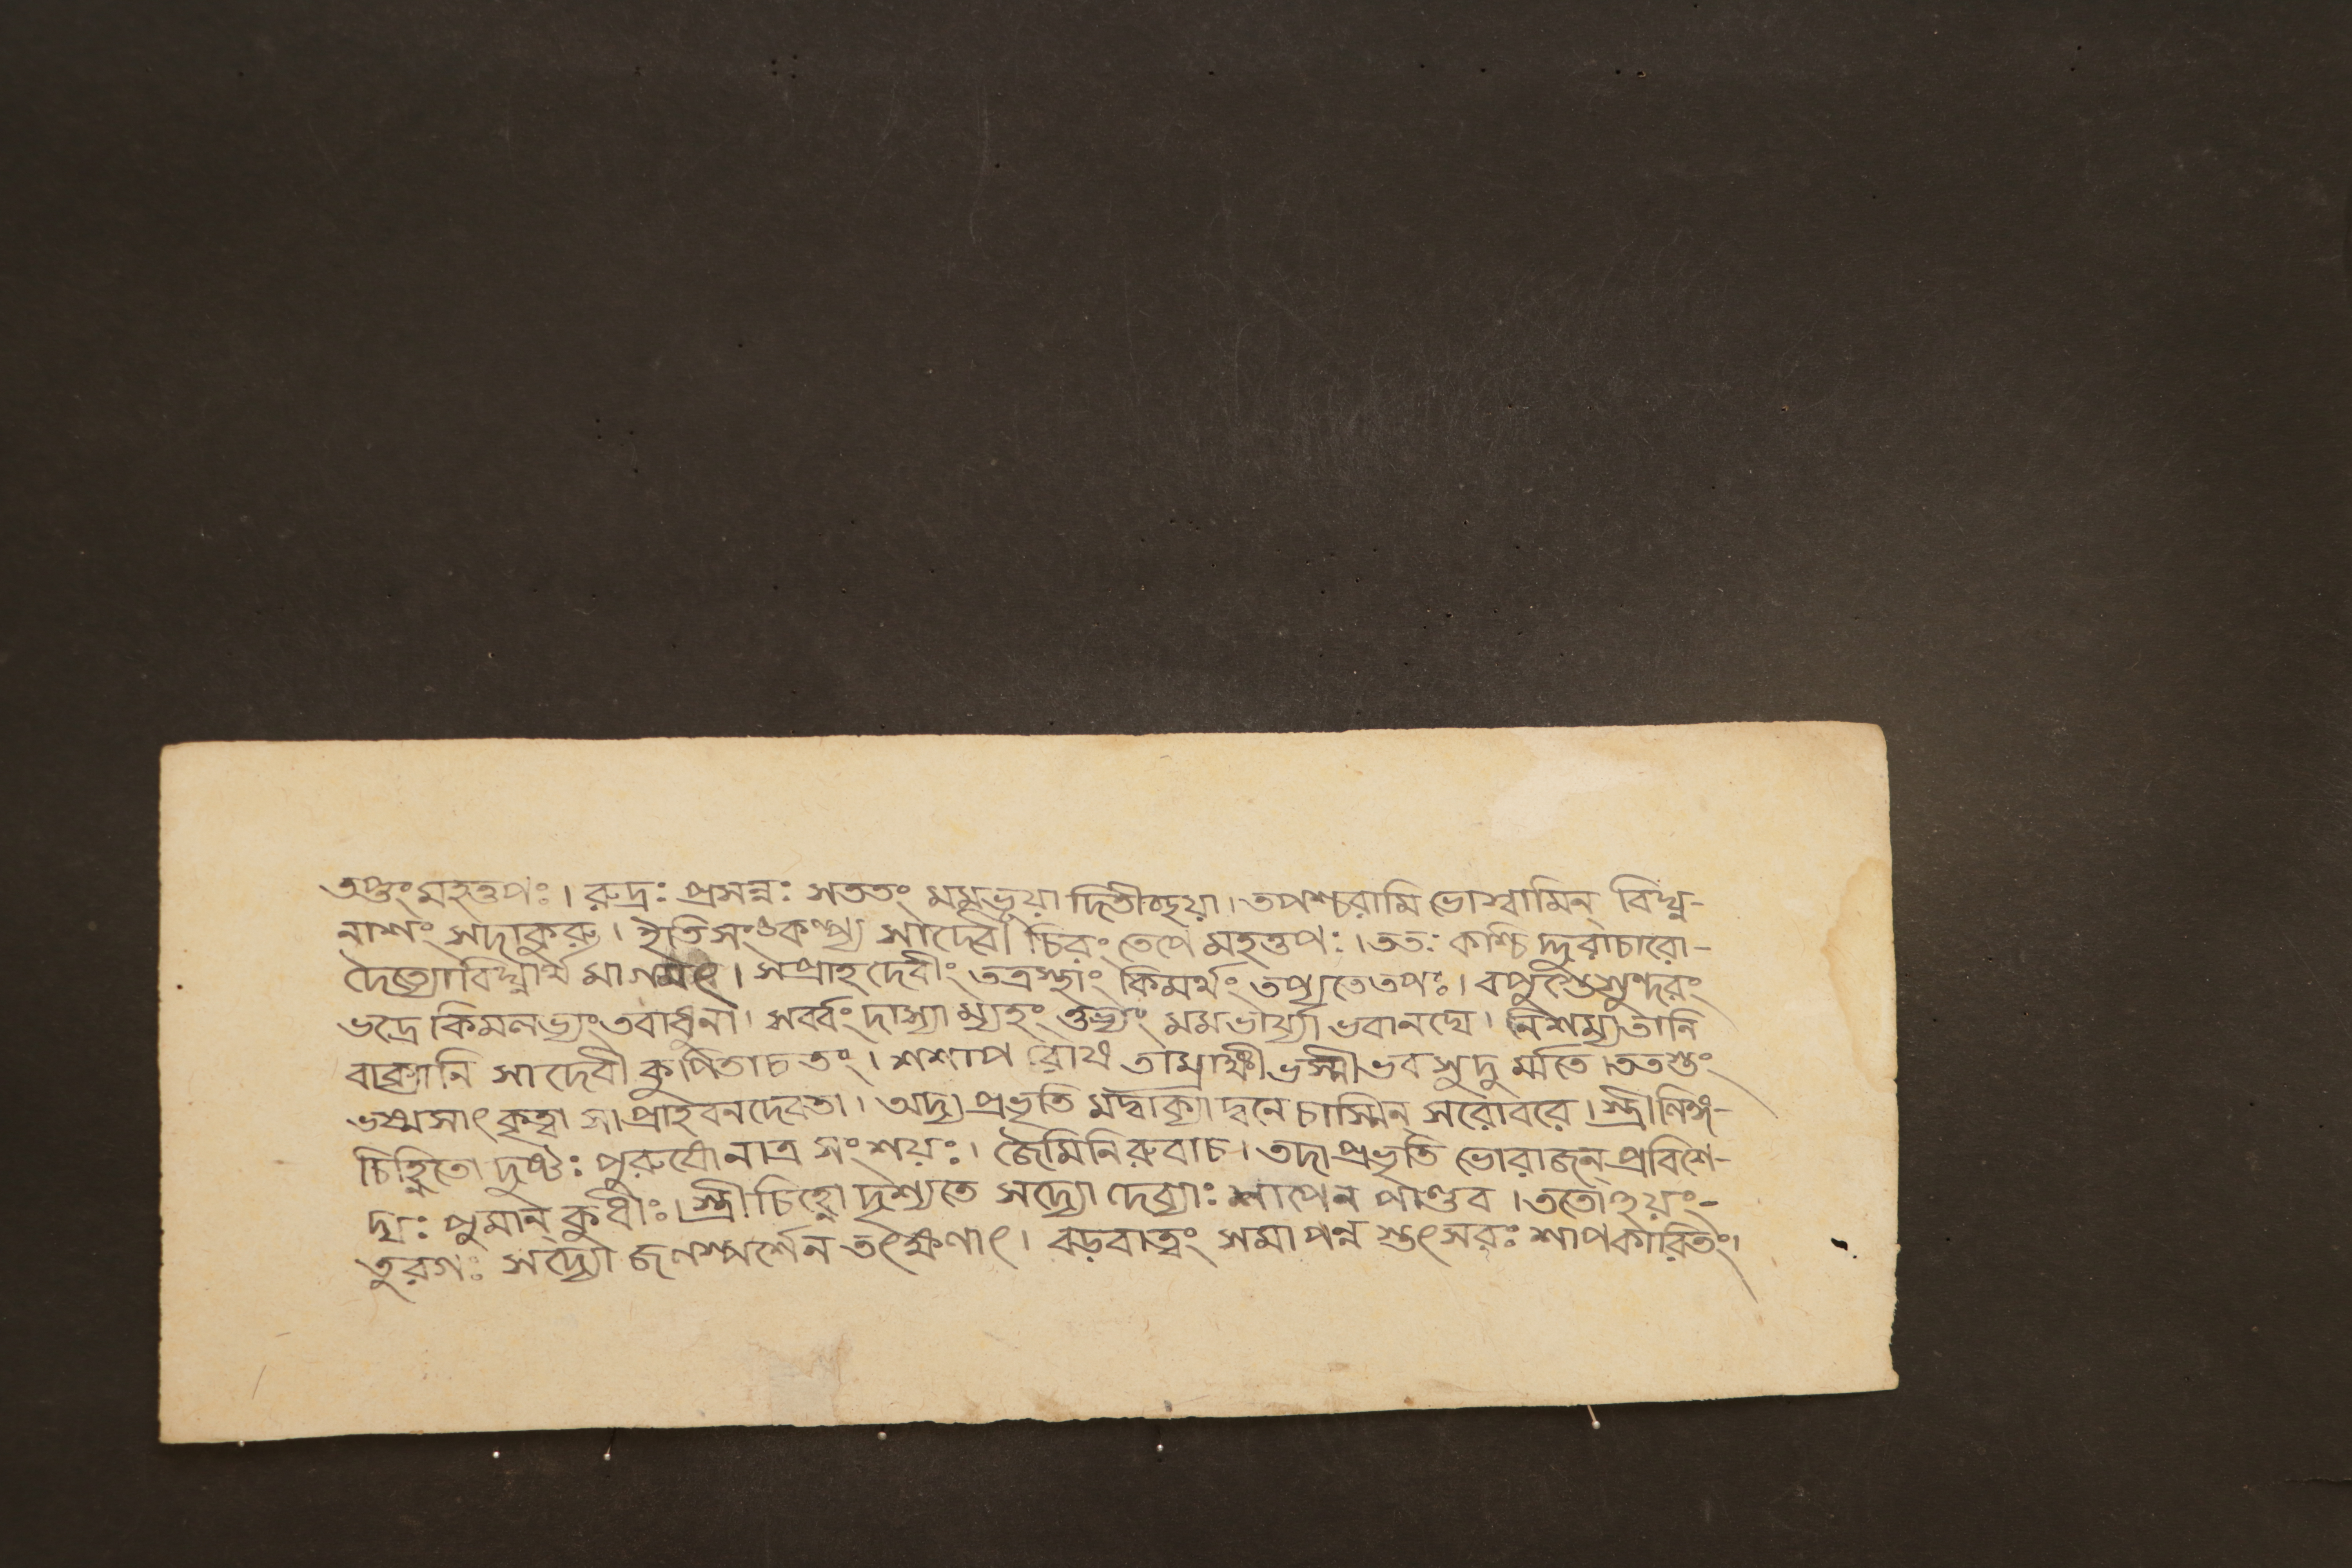 তপ্তুং মহত্তপঃ। রুদ্রঃ প্রসন্নঃ সততং মমভূয়া দিতীচ্ছয়া। তপশ্চরামি ভোস্বামিন্ বিঘ্ন-
নাশং সদাকুরু। ইতিসংকল্প্য সাদেবী চিরং তেপে মহত্তপঃ। ততঃ কশ্চি দ্দুরাচারো-
দৈত্যোবিঘ্নার্থ মাগমৎ। সপ্রাহ দেবীং তত্রস্থাং কিমর্থং তপ্যতেতপঃ। বপুস্তেসুন্দরং
ভদ্রে কিমলভ্যং তবাধুনা। সর্ব্বং দাস্যা ম্যহং তুভ্যং মমভার্য্যা ভবানঘে। নিশম্যতানি
বাক্যানি সা দেবী কুপিতাচ তং। শশাপ রোষ তাম্রাক্ষী ভস্মী ভব সুদু র্ম্মতে। ততস্তং
ভস্মসাৎ কৃত্বা সা প্রাহ বনদেবতা। অদ্য প্রভৃতি মদ্বাক্যা দ্বনে চাস্মিন্ সরোবরে। স্ত্রীলিঙ্গ-
চিহ্নিতো দুষ্টঃ পুরুষো নাত্র সংশয়ঃ। জৈমিনিরুবাচ। তদা প্রভৃতি ভোরাজন্ প্রবিশে-
দ্যঃ পুমান্ কুধীঃ। স্ত্রীচিহ্নো দৃশ্যতে সদ্যো দেব্যাঃ শাপেন পাণ্ডব। ততোঽয়ং-
তুরগঃ সদ্যো জলস্পর্শেন তৎক্ষণাৎ। বড়বাত্বং সমাপন্ন স্তৎসরঃ শাপকারিতং।